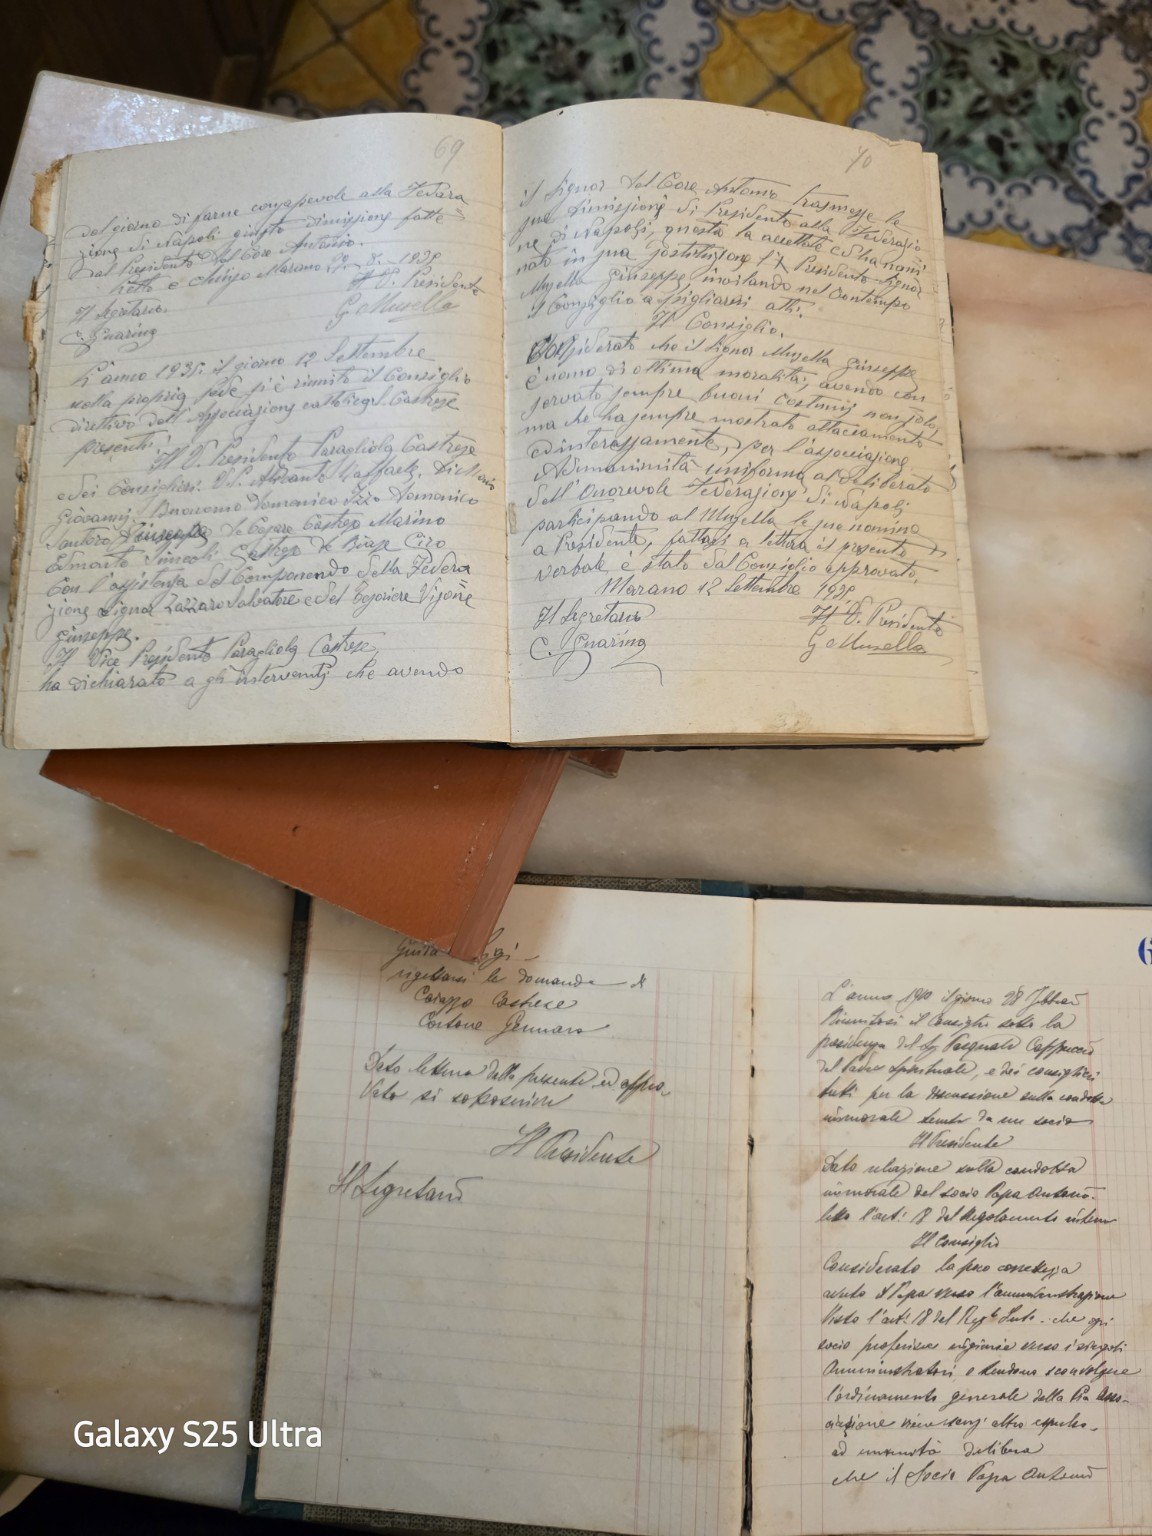 69
del giorno di farne consapevole alla Federa
zione di Napoli giusto dimissioni fatte
dal Presidente del Core Antonio.
Letto e chiuso Marano 1935
Il V. Presidente
Il Segretario
G Musella
C. Guarino
L'anno 1935 il giorno 12 Settembre
nella propria sede si è riunito il Consiglio
direttivo dell'Associazione cattolica S. Castrese
presenti
Il V. Presidente Paragliola Castrese
e dei Consiglieri
Giovanni Buonomo Domenico Izzo Domenico
Santoro Giuseppe de Castrese Marino
Edmondo Castrese de Biase Ciro
Con l'assistenza del Componendo della Federa
zione Signor Zazzaro Salvatore e del Cassiere
Giuseppe.
Il Vice Presidente Paragliola Castrese
ha dichiarato a gli intervenuti che avendo
70
il Signor del Core Antonio trasmesse le
sue dimissioni di Presidente alla Federazio
ne di Napoli, questa la accettate ed ha nomi
nato in sua sostituzione Presidente Signor
Musella Giuseppe, invitando nel contempo
il Consiglio a pigliarsi atti.
Il Consiglio.
Considerato che il Signor Musella Giuseppe
è uomo di ottima moralità, avendo con
servato sempre buoni costumi non solo,
ma che ha sempre mostrato attaccamento
ed interessamento, per l'associazione
Ad unanimità uniforma al deliberato
dell'Onorevole Federazione di Napoli
participando al Musella le sue nomina
a Presidente, fattasi a lettura il presente
verbale è stato dal Consiglio approvato.
Marano 12 Settembre 1935
Il Segretario
Il V. Presidente
C. Guarino
G Musella
6
rigettarsi la domanda di
Carozza Castrese
Cortone Gennaro
Dato lettura della presente ed appro
vato si
Il Presidente
Il Segretario
L'anno 1910 il giorno 28 Febbraio
Riunitosi il Consiglio sotto la
presidenza del Sig Pasquale Cappuccio
del Padre Spirituale, e dei consiglieri
tutti per la discussione sulla condotta
immorale tenuta da un socio
Il Presidente
Dato relazione sulla condotta
immorale del socio Papa Antonio.
letto l'art. 18 del Regolamento interno
Il Consiglio
Considerato la poco
avuto il Papa verso l'amministrazione
Visto l'art. 18 del Reg.to Int. che ogni
socio proferisce ingiurie verso i singoli
Amministratori o tendono sconvolgere
l'ordinamento generale della Pia Asso-
ciazione
ad unanimità delibera
che il Socio Papa Antonio
Galaxy S25 Ultra